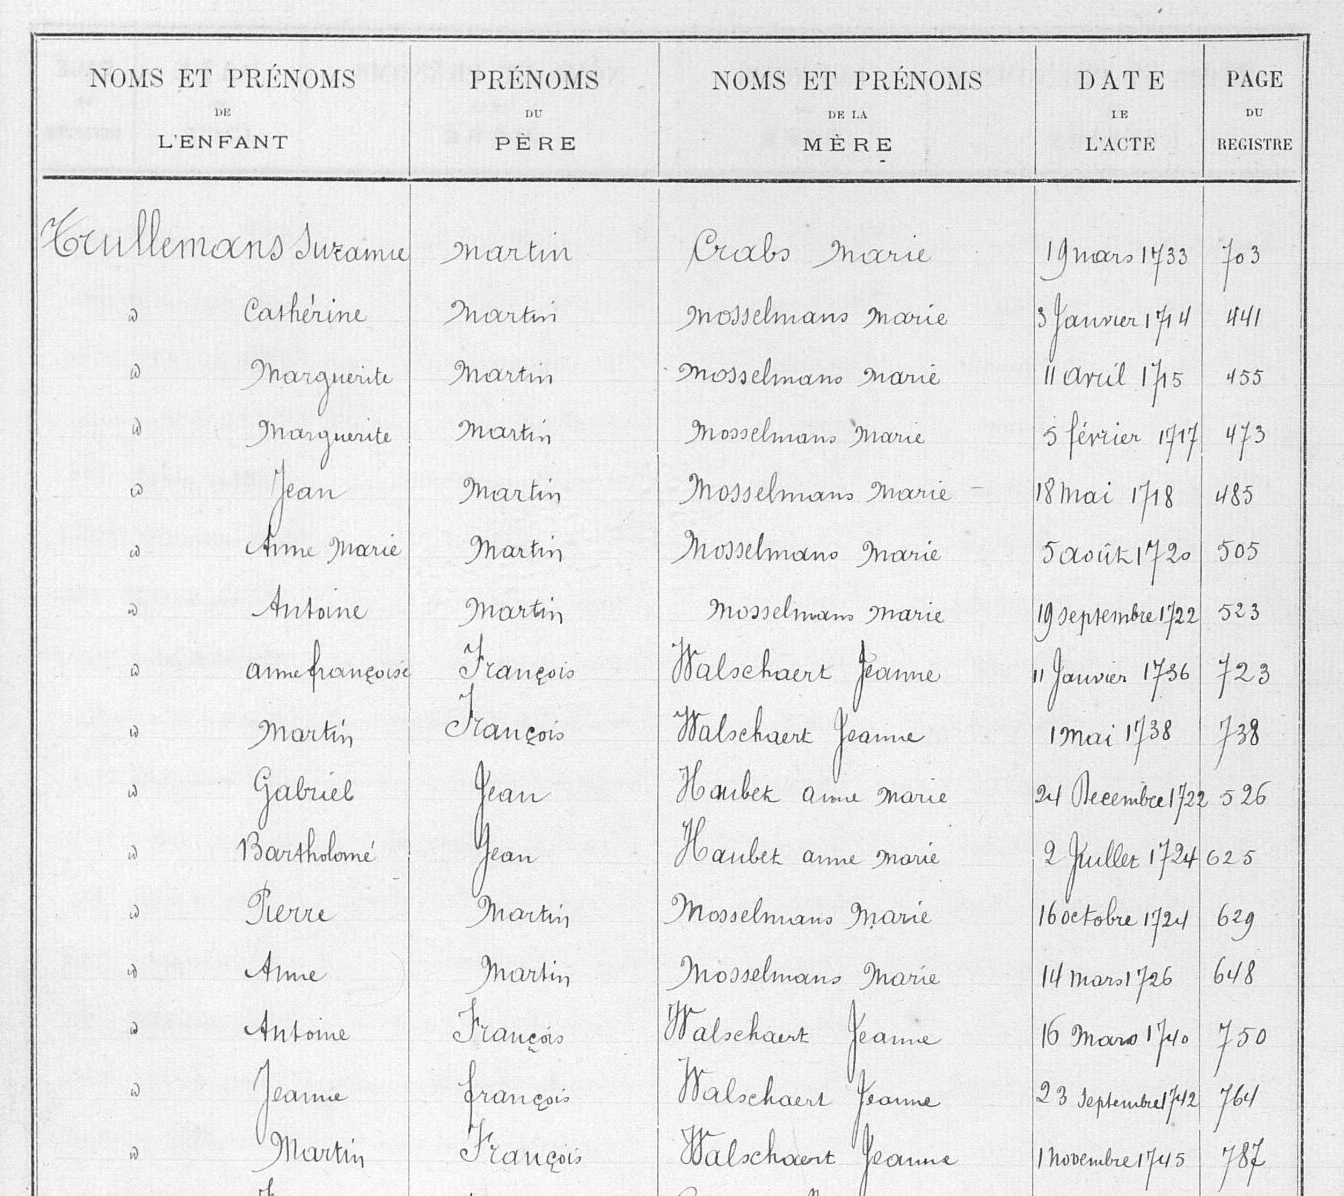 NOMS ET PRÉNOMS DE L'ENFANT | PRÉNOMS DU PÈRE | NOMS ET PRÉNOMS DE LA MÈRE | DATE DE L'ACTE | PAGE DU REGISTRE
Trullemans Suzanne | Martin | Crabs Marie | 19 mars 1733 | 703
id Cathérine | Martin | Mosselmans Marie | 3 Janvier 1714 | 441
id Marguerite | Martin | Mosselmans Marie | 11 avril 1715 | 455
id Marguerite | Martin | Mosselmans Marie | 5 février 1717 | 473
id Jean | Martin | Mosselmans Marie - | 18 Mai 1718 | 485
id Anne Marie | Martin | Mosselmans Marie | 5 août 1720 | 505
id Antoine | Martin | Mosselmans Marie | 19 septembre 1722 | 523
id anne françoise | François | Walschaert Jeanne | 11 Janvier 1736 | 723
id Martin | François | Walschaert Jeanne | 1 Mai 1738 | 738
id Gabriel | Jean | Haubek anne Marie | 24 Decembre 1722 | 526
id Bartholomé | Jean | Haubek anne Marie | 2 Juillet 1724 | 625
id Pierre | Martin | Mosselmans Marie | 16 octobre 1724 | 629
id Anne | Martin | Mosselmans Marie | 14 mars 1726 | 648
id Antoine | François | Walschaert Jeanne | 16 Mars 1740 | 750
id Jeanne | françois | Walschaert Jeanne | 23 Septembre 1742 | 764
id Martin | François | Walschaert Jeanne | 1 Novembre 1745 | 787